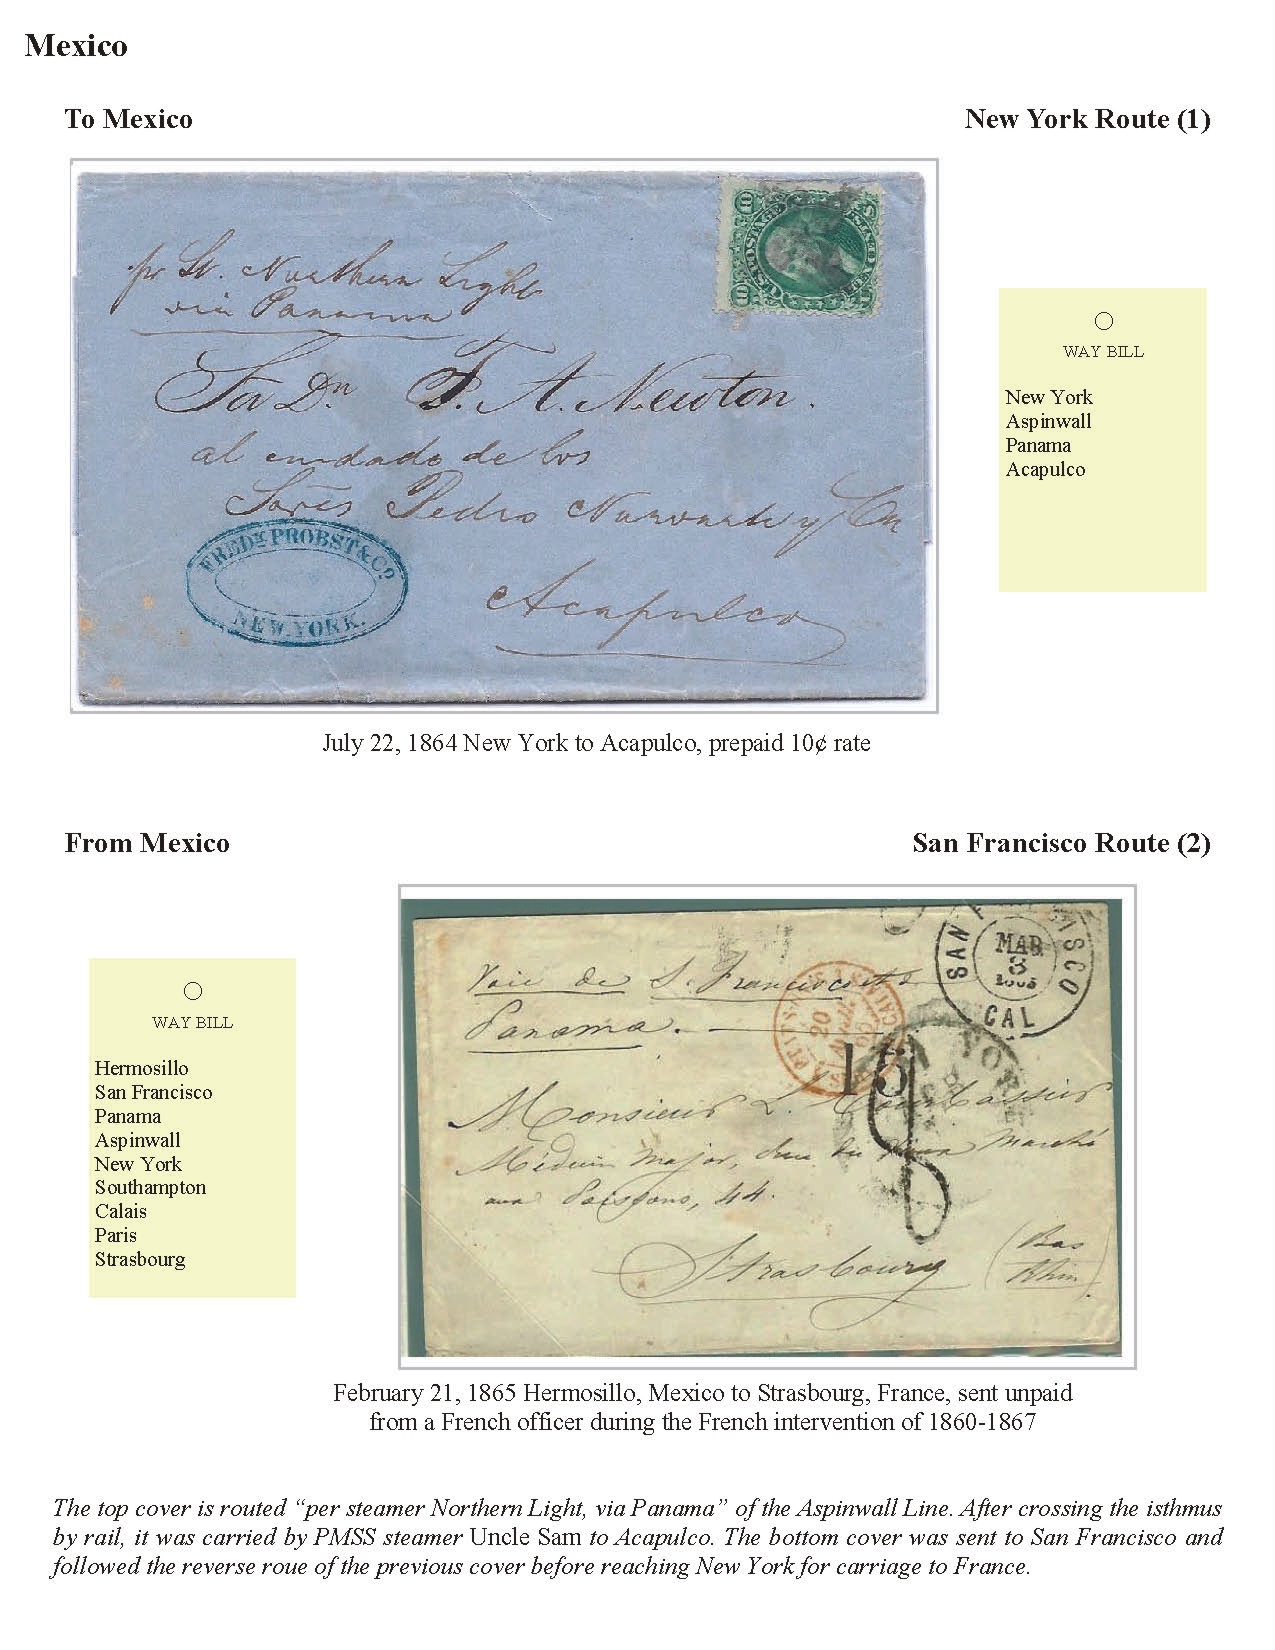 Mexico
To Mexico
New York Route (1)
pr St. Northern Light
via Panama
Sor Dn F. A. Newton.
al cuidado de los
Sores Pedro y Ca
Acapulco
FREDK PROBST & Co.
NEW YORK.
U.S. POSTAGE
10
10
WAY BILL
New York
Aspinwall
Panama
Acapulco
July 22, 1864 New York to Acapulco, prepaid 10¢ rate
From Mexico
San Francisco Route (2)
WAY BILL
Hermosillo
San Francisco
Panama
Aspinwall
New York
Southampton
Calais
Paris
Strasbourg
SAN FRANCISCO
MAR
3
1865
CAL
Voie de S. Francisco et de
Panama.
20
CALAIS
15
YORK
Monsieur L.
Médecin Major, Rue du Vieux Marché
aux Poissons, 44.
Strasbourg (Bas
Rhin)
8
February 21, 1865 Hermosillo, Mexico to Strasbourg, France, sent unpaid
from a French officer during the French intervention of 1860-1867
The top cover is routed “per steamer Northern Light, via Panama” of the Aspinwall Line. After crossing the isthmus
by rail, it was carried by PMSS steamer Uncle Sam to Acapulco. The bottom cover was sent to San Francisco and
followed the reverse roue of the previous cover before reaching New York for carriage to France.